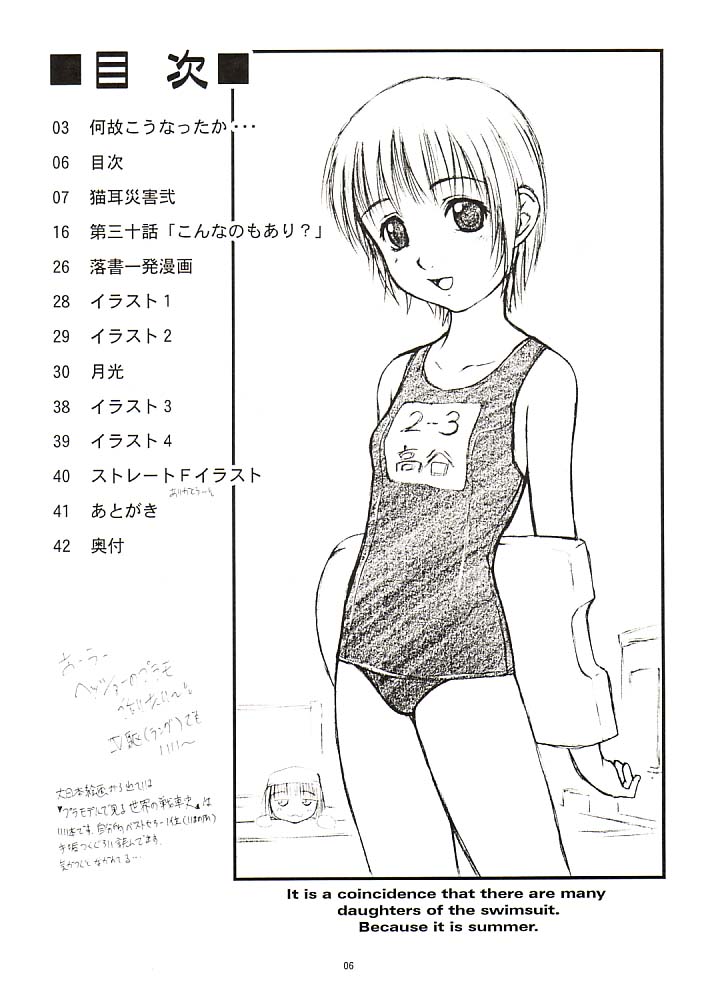 ■目 次■
03 何故こうなったか・・・
06 目次
07 猫耳災害弐
16 第三十話「こんなのもあり？」
26 落書一発漫画
28 イラスト１
29 イラスト２
30 月光
38 イラスト３
39 イラスト４
40 ストレートＦイラスト
41 あとがき
42 奥付
2-3
高谷
あーうー
Ⅳ駆(ラング)でも
いいい〜
大日本絵画から出ている
『プラモデルで見る世界の戦車史』は
It is a coincidence that there are many
daughters of the swimsuit.
Because it is summer.
06